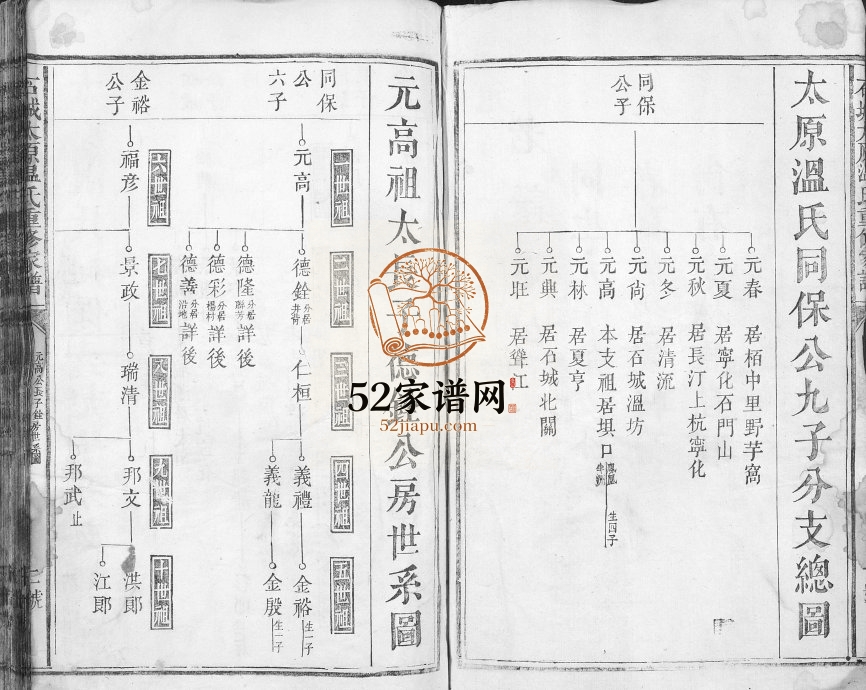 太原溫氏同保公九子分支總圖
同保公子
元春 居栢中里野芋窩
元夏 居寧化石門山
元秋 居長汀上杭寧化
元冬 居清流
元尙 居石城溫坊
元高 本支祖居垻口 生四子
元林 居夏亨
元興 居石城北關
元旺 居聳江
元高祖太長子德銓公房世系圖
一世祖
二世祖
三世祖
四世祖
五世祖
同保公六子
元高
德銓 分居
德隆 分居聯芳 詳後
德彩 分居楊村 詳後
德善 分居沿地 詳後
仁桓
義禮
義龍
金裕 生一子
金殷 生一子
六世祖
七世祖
八世祖
九世祖
十世祖
金裕公子
福彥
景政
瑞清
邦文
邦武 止
洪郎
江郎
石城太原溫氏重修家譜
元高公長子銓房世系圖
二號
52家谱网
52jiapu.com